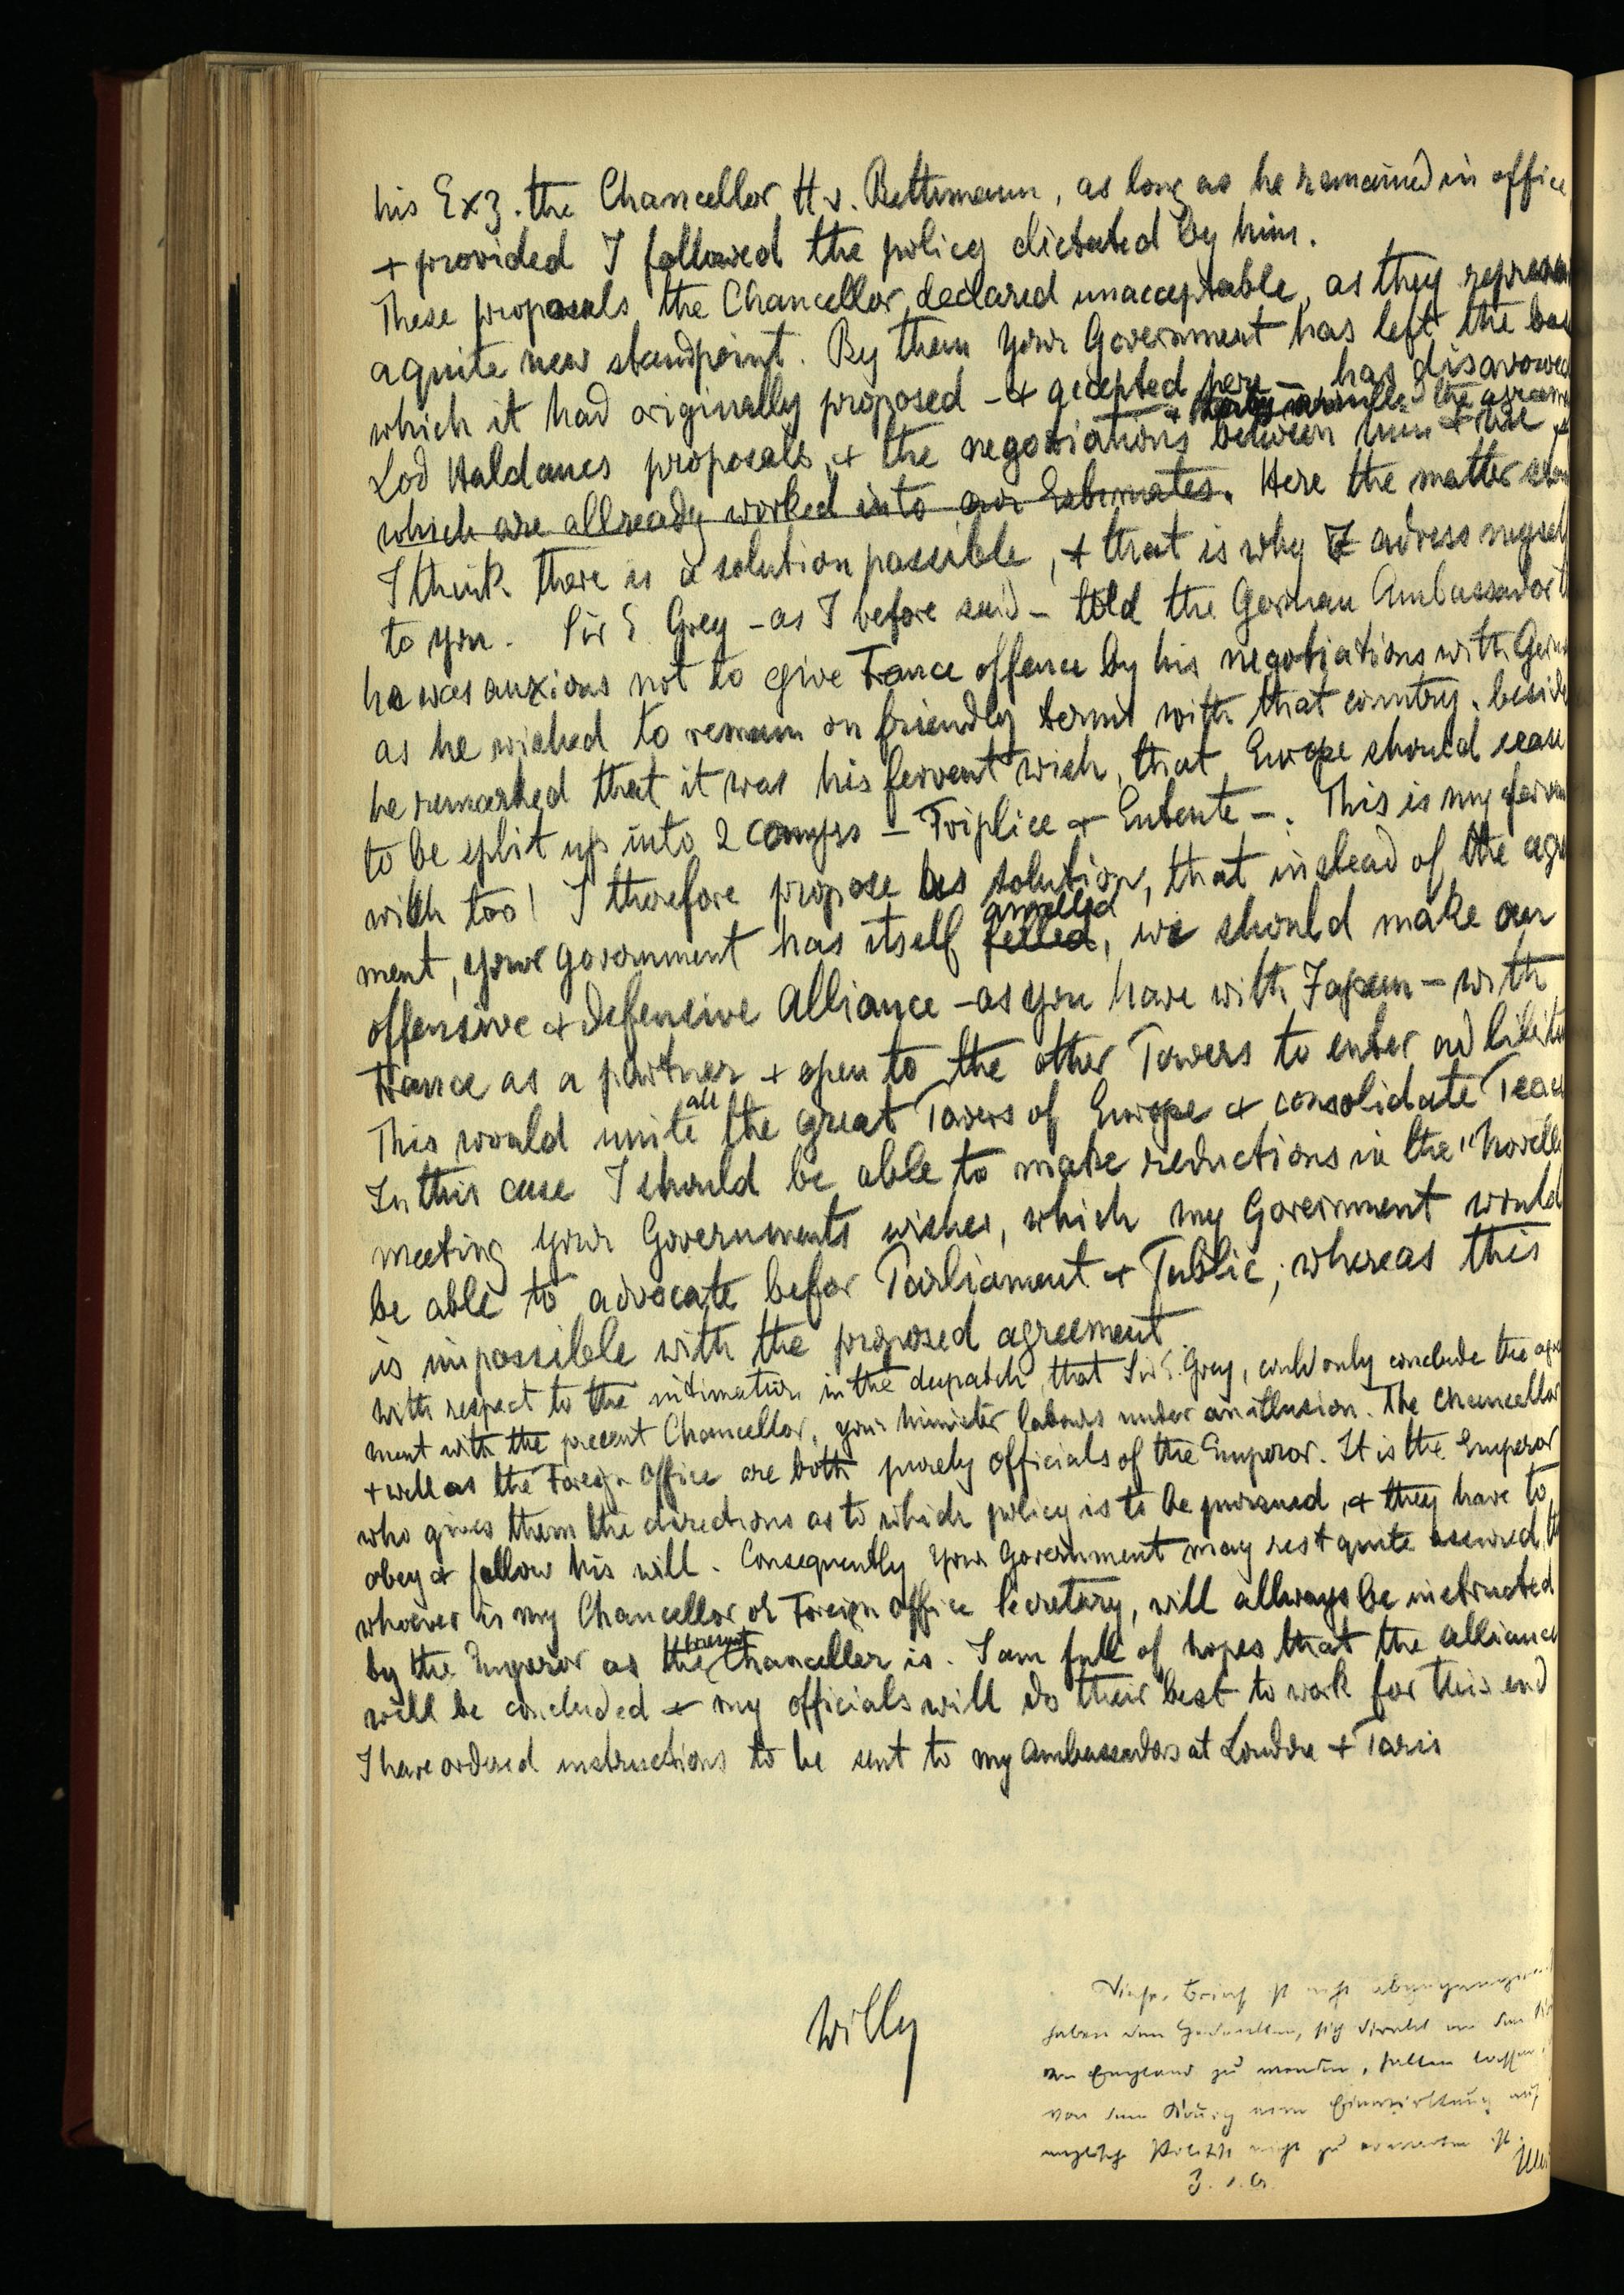 his Exz. the Chancellor H v. Bethmann, as long as he remained in office
+ provided I followed the policy dictated by him.
These proposals the Chancellor, declared unacceptable, as they represen
a quite new standpoint. By them Your Government has left the bas
which it had originally proposed - + accepted here - has disavowed
+ annulled the agreeme
Lod Haldanes proposals, + the negotiations between him + me +
which are allready worked into our Estimates. Here the matter stan
I think there is a solution possible, + that is why I adress myself
to you. Sir E. Grey - as I before said - told the German Ambassador t
he was anxious not to give France offence by his negotiations with Germ
as he wished to remain on friendly terms with that country. beside
he remarked that it was his fervent wish, that Europe should cease
to be split up into 2 camps - Triplice + Entente -. This is my ferven
wish too! I therefore propose as solution, that instead of the agre
annulled
ment, your government has itself killed, we should make an
offensive + defensive Alliance - as you have with Japan - with
France as a partner + open to the other Powers to enter ad libitu
all
This would unite the great Powers of Europe + consolidate Peace
In this case I should be able to make reductions in the "Novelle
meeting your Governments wishes, which my Government would
be able to advocate befor Parliament + Public; whereas this
is impossible with the proposed agreement.
With respect to the intimation in the despatch, that Sir E. Grey, could only conclude the agre
ment with the present Chancellor, your Minister labours under an illusion. The Chancellor
+ well as the Foreign Office are both purely officials of the Emperor. It is the Emperor
who gives them the directions as to which policy is to be pursued, + they have to
obey + follow his will. Consequently Your Government may rest quite assured, th
whoever is my Chancellor or Foreign Office Secretary, will allways be instructed
present
by the Emperor as the Chancellor is. I am full of hopes that the alliance
will be concluded + my officials will do their best to work for this end
I have ordered instructions to be sent to my Ambassadors at London + Paris
Willy
Dieser Brief ist nicht abgegangen
haben den Gedanken, sich direkt an den
von England zu wenden, fallen lassen,
von dem König eine Einwirkung auf
englische Politik nicht zu erwarten ist.